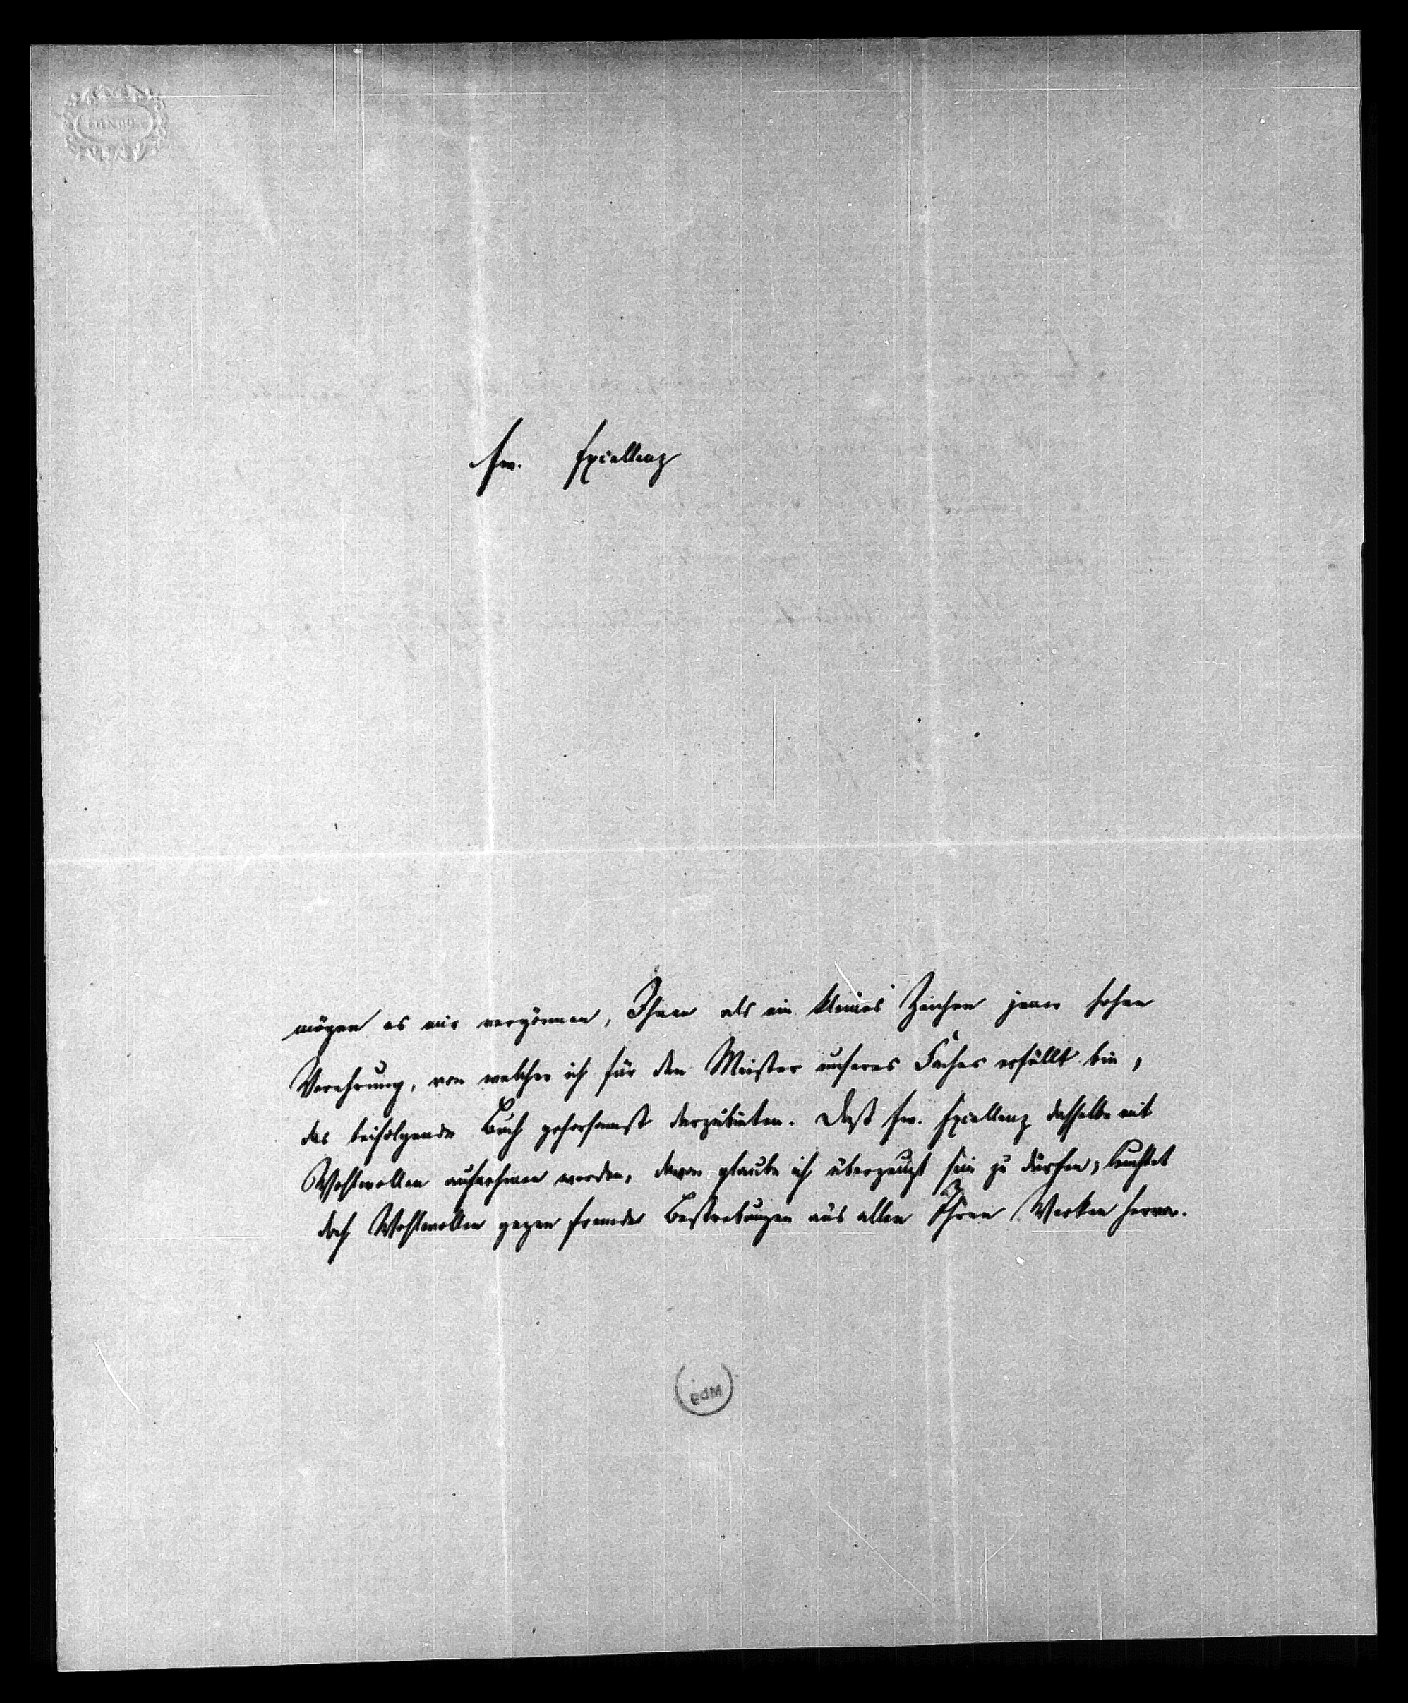 Ew. Excellenz
mögen es mir vergönnen, Ihnen als ein kleines Zeichen jener hohen
Verehrung, von welcher ich für den Meister unseres Faches erfüllt bin,
das beifolgende Buch gehorsamst darzubieten. Daß Ew. Excellenz dasselbe mit
Wohlwollen aufnehmen werden, davon glaube ich überzeugt sein zu dürfen, leuchtet
doch Wohlwollen gegen fremde Bestrebungen aus allen Ihren Werken hervor.
BdM